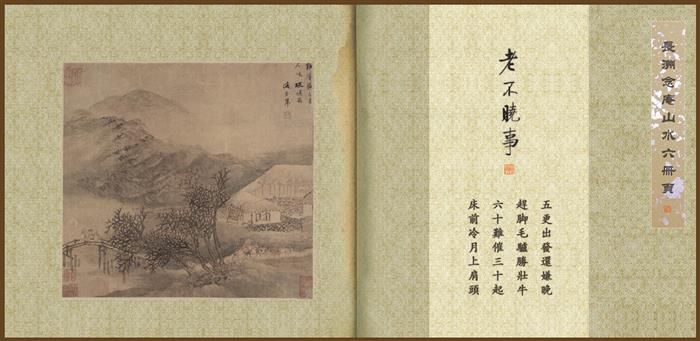 長洲念庵山水六冊頁
老不曉事
五更出發還嫌晚
趕脚毛驢勝壯牛
六十難催三十起
床前冷月上肩頭